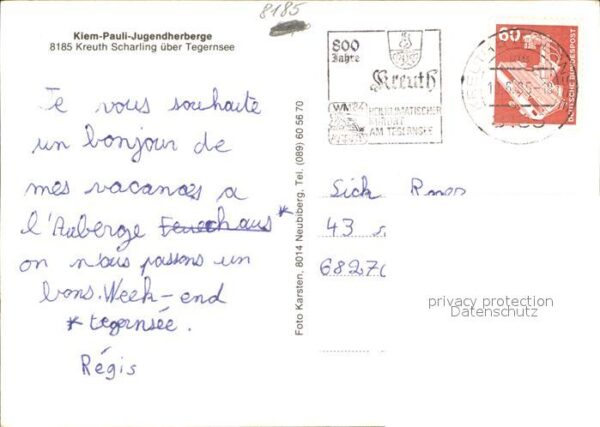 8185
Kiem-Pauli-Jugendherberge
8185 Kreuth Scharling über Tegernsee
Je vous souhaite
un bonjour de
mes vacances a
l'Auberge *
ou nous passons un
bons. Week-end
* tegernsée.
Régis
Foto Karsten, 8014 Neubiberg, Tel. (089) 60 56 70
800
Jahre
Kreuth
HEILKLIMATISCHER
KURORT
AM TEGERNSEE
60
DEUTSCHE BUNDESPOST
Sick
43
6827
privacy protection
Datenschutz